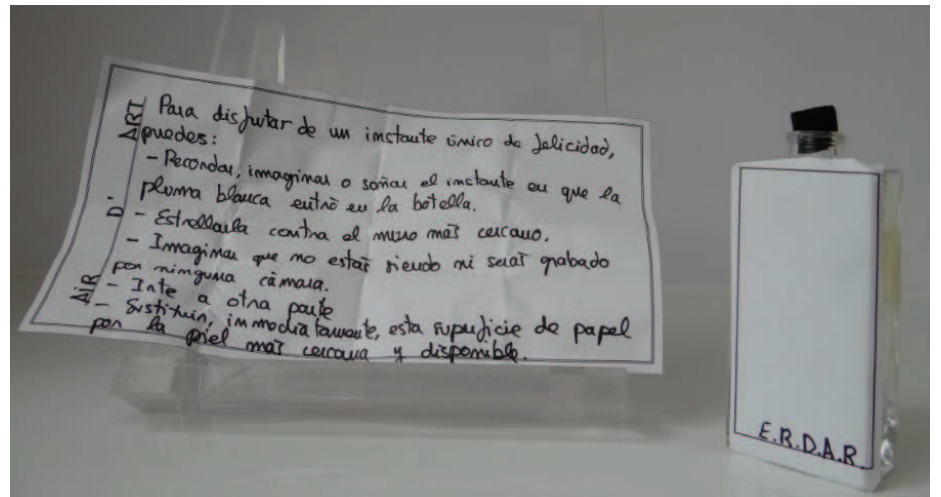 Para disfrutar de un instante único de felicidad,
puedes:
- Recordar, imaginar o soñar el instante en que la
pluma blanca entró en la botella.
- Estrellarla contra el muro más cercano.
- Imaginar que no estás siendo ni serás grabado
por ninguna cámara.
- Irte a otra parte
- Sustituir, immediatamente, esta superficie de papel
por la piel más cercana y disponible.
AiR D' ART
E.R.D.A.R.